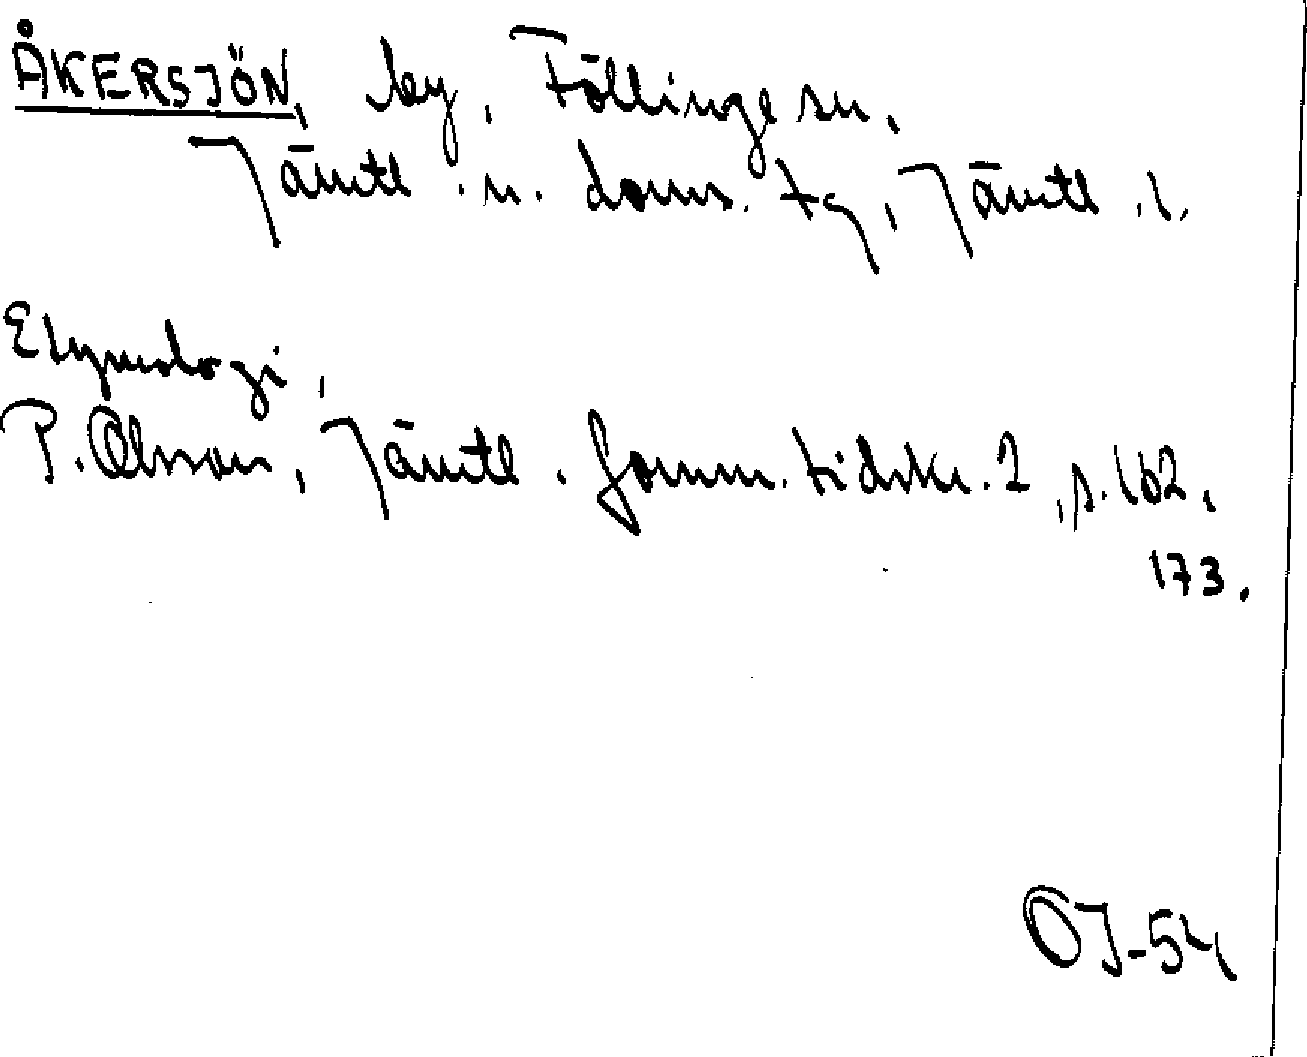 ÅKERSJÖN, by, Föllinge sn,
Jämtl. n. doms. tg, Jämtl. l.
Etymologi,
P. Olsson, Jämtl. fornm. tidskr. 2, s. 162,
173.
OJ-54